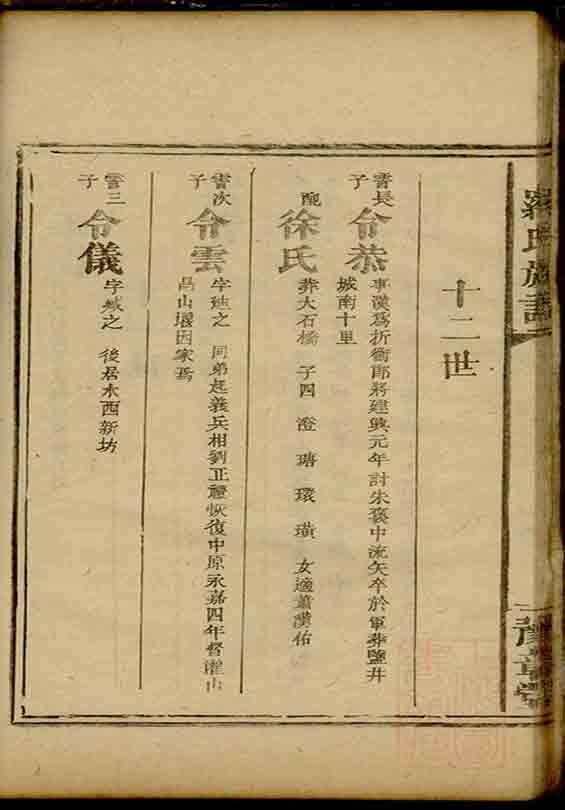 羅氏族譜
豫章堂
十二世
書長子
令恭
事漢為折衝郎將建興元年討朱褒中流矢卒於軍葬鹽井
城南十里
配
徐氏
葬大石橋 子四 澄 瑭 環 璜 女適蕭漢佑
書次子
令雲
字 之 同弟起義兵相劉正禮恢復中原永嘉四年督
昌山堰因家焉
書三子
令儀
字 之 後居水西新坊